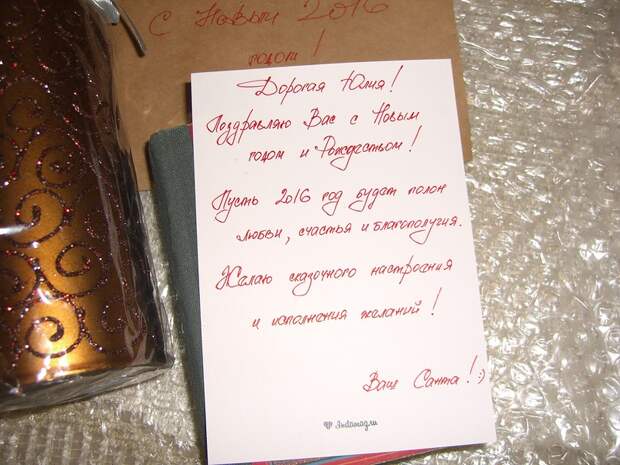 С Новым 2016
годом!
Дорогая Юлия!
Поздравляю Вас с Новым
годом и Рождеством!
Пусть 2016 год будет полон
любви, счастья и благополучия.
Желаю сказочного настроения
и исполнения желаний!
Ваш Санта! :)